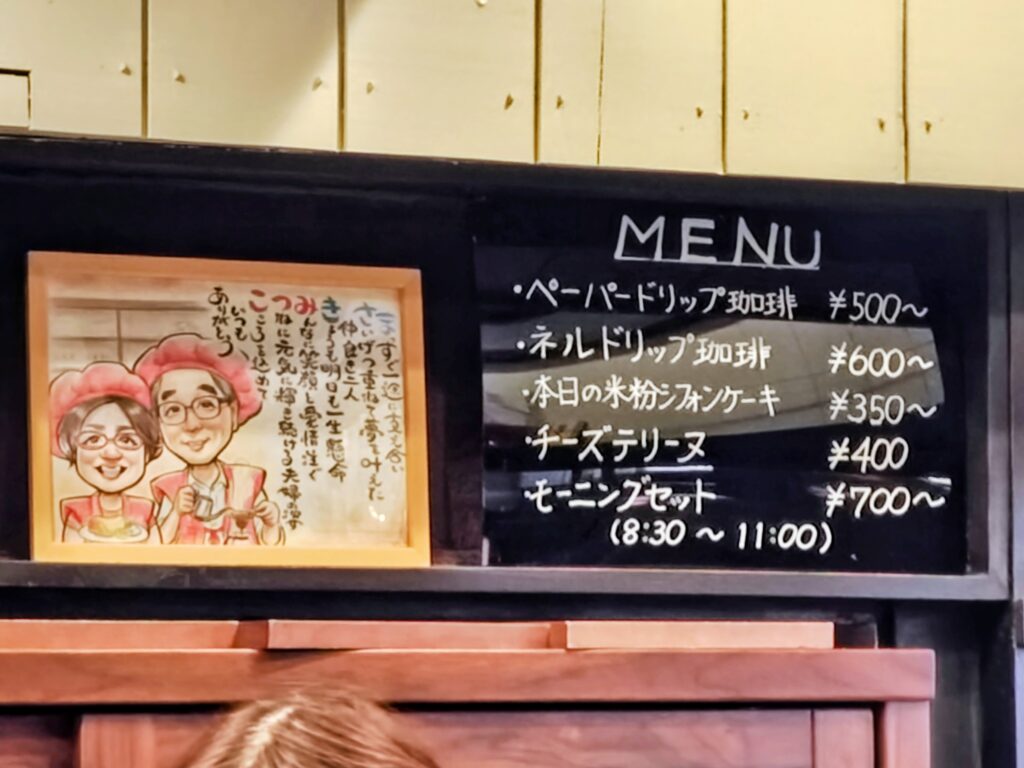 まっすぐ一途に支え合い
さいげつ重ねて夢を叶えた
仲良き二人
きょうも明日も一生懸命
みんなに笑顔と愛情注ぐ
つねに元気に輝き続ける夫婦の姿
こころを込めて
いつも
ありがとう
MENU
・ペーパードリップ珈琲 ¥500～
・ネルドリップ珈琲 ¥600～
・本日の米粉シフォンケーキ ¥350～
・チーズテリーヌ ¥400
・モーニングセット ¥700～
(8:30 ～ 11:00)